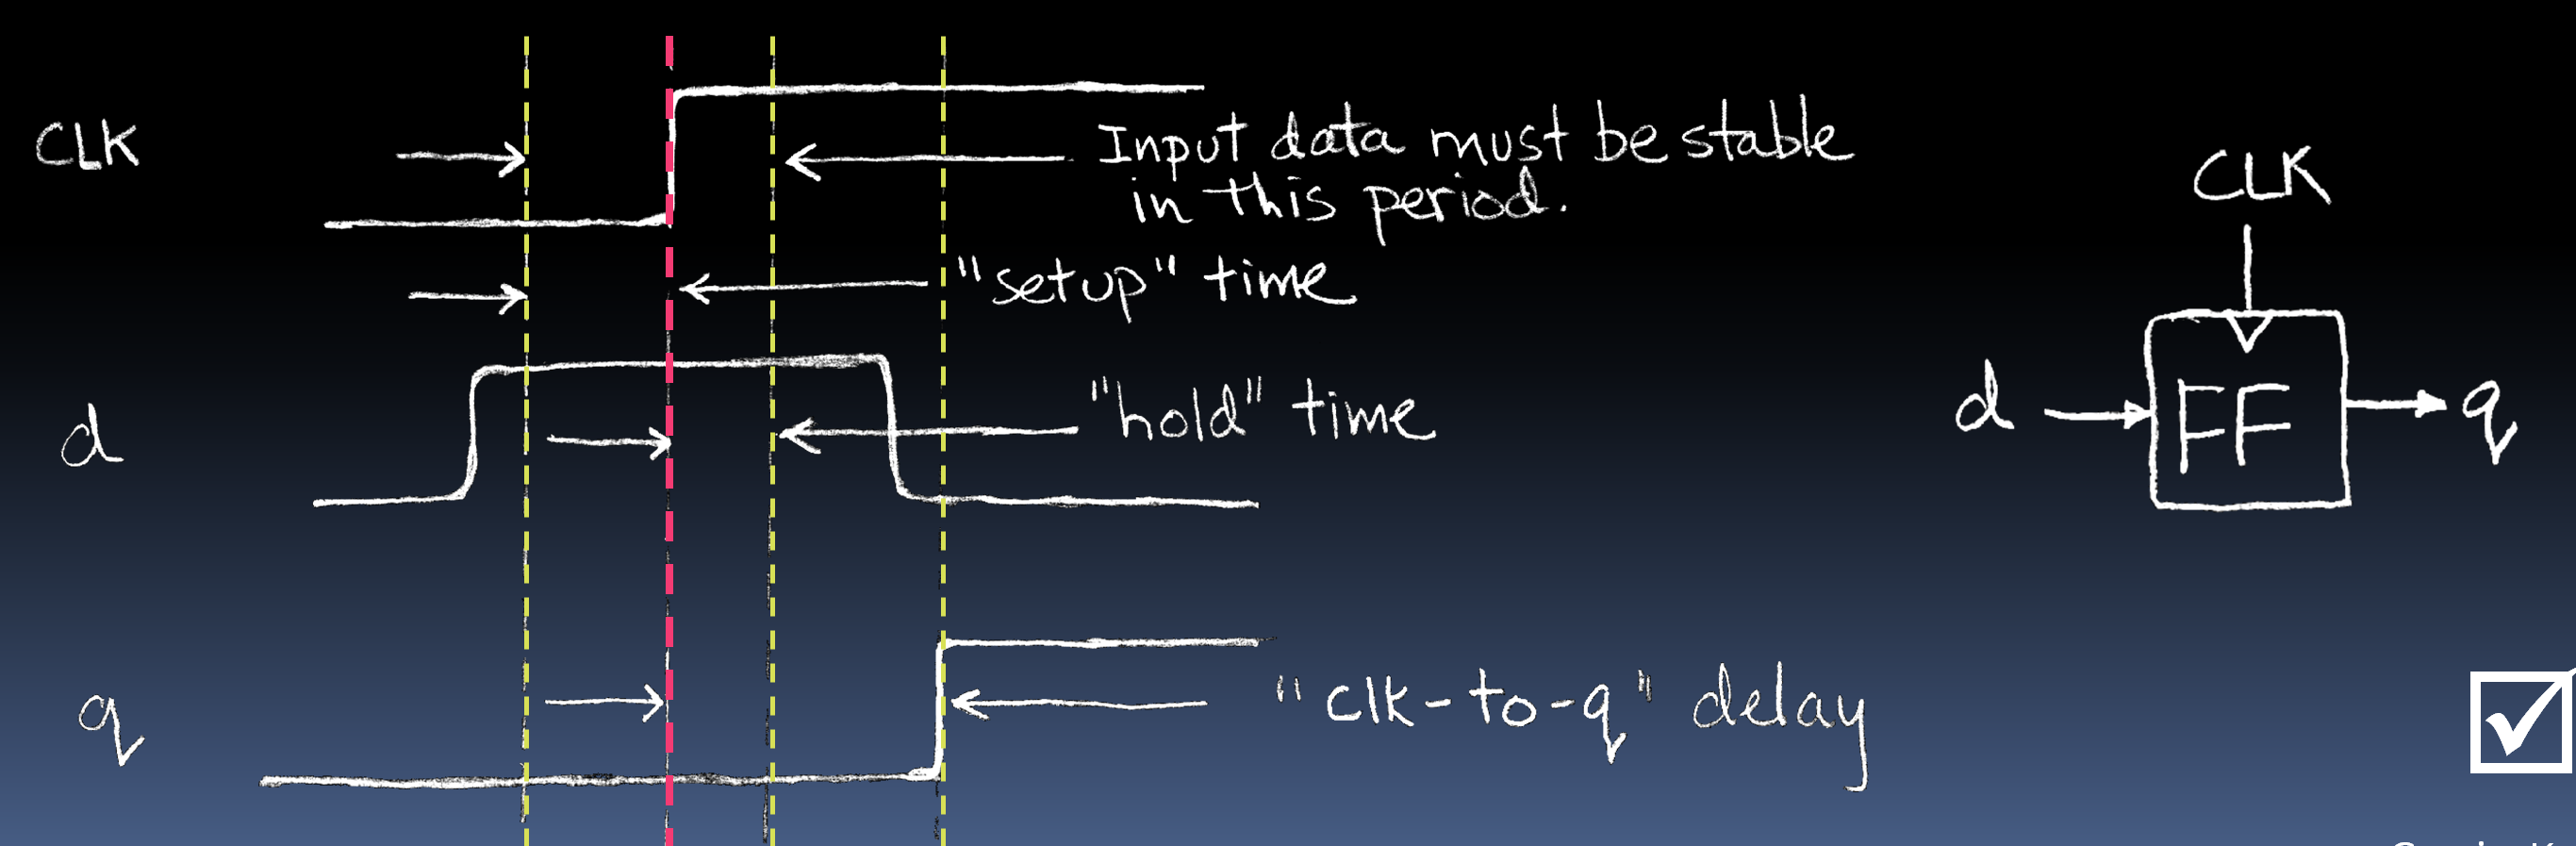 CLK
Input data must be stable
in this period.
CLK
"setup" time
d
"hold" time
d
FF
q
q
"clk-to-q" delay